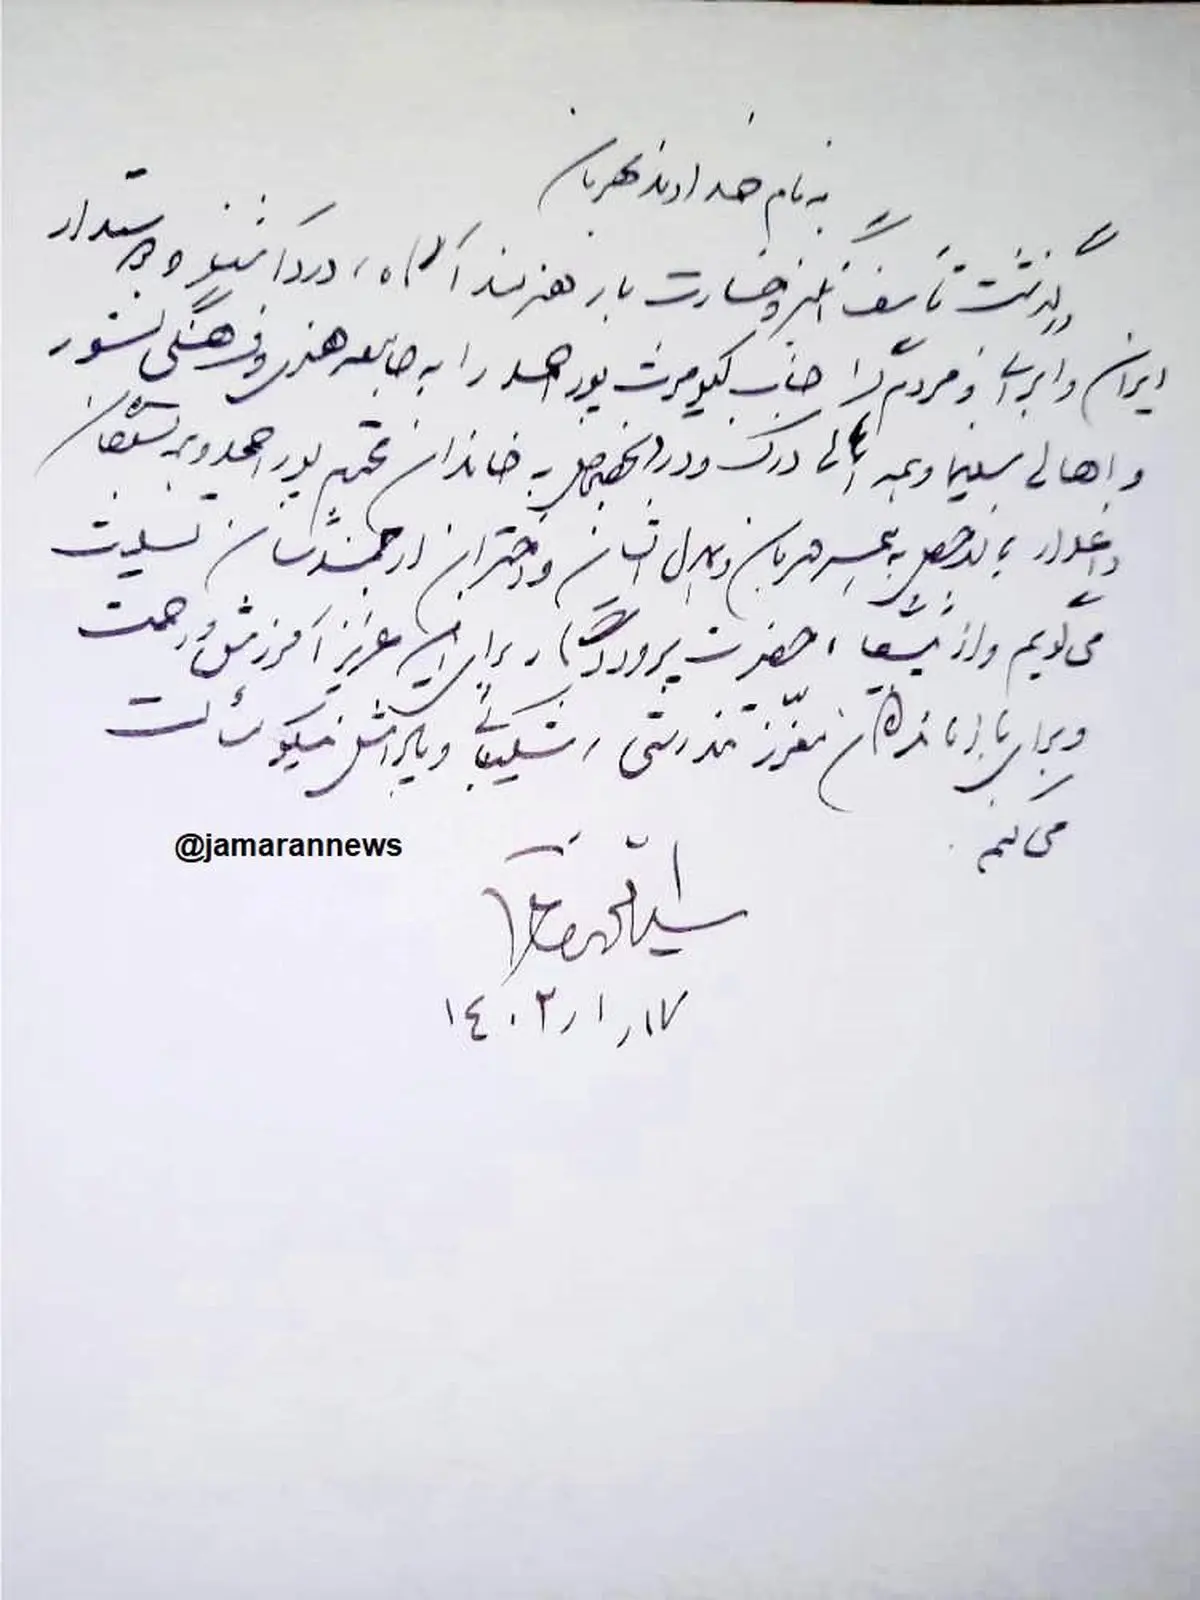 به نام خداوند مهربان
درگذشت تأسف انگیز و خسارت بار هنرمند آگاه، دردآشنا و دوستدار
ایران و ایرانی و مردم گرا جناب کیومرث پوراحمد را به جامعه هنری و فرهنگی کشور
و اهالی سینما و همه اهالی درک و درد و بخصوص به خاندان محترم پوراحمد و همه بستگان
داغدار و بالاخص به همسر مهربان و دختران ارجمندشان تسلیت
می‌گویم و از پیشگاه حضرت پروردگار برای آن عزیز آمرزش و رحمت
و برای بازماندگان معزّز تندرستی، شکیبایی و پاداش نیکو مسألت
می‌کنم.
@jamarannews
سید محمد خاتمی
۱۷ر۱ر۱۴۰۲